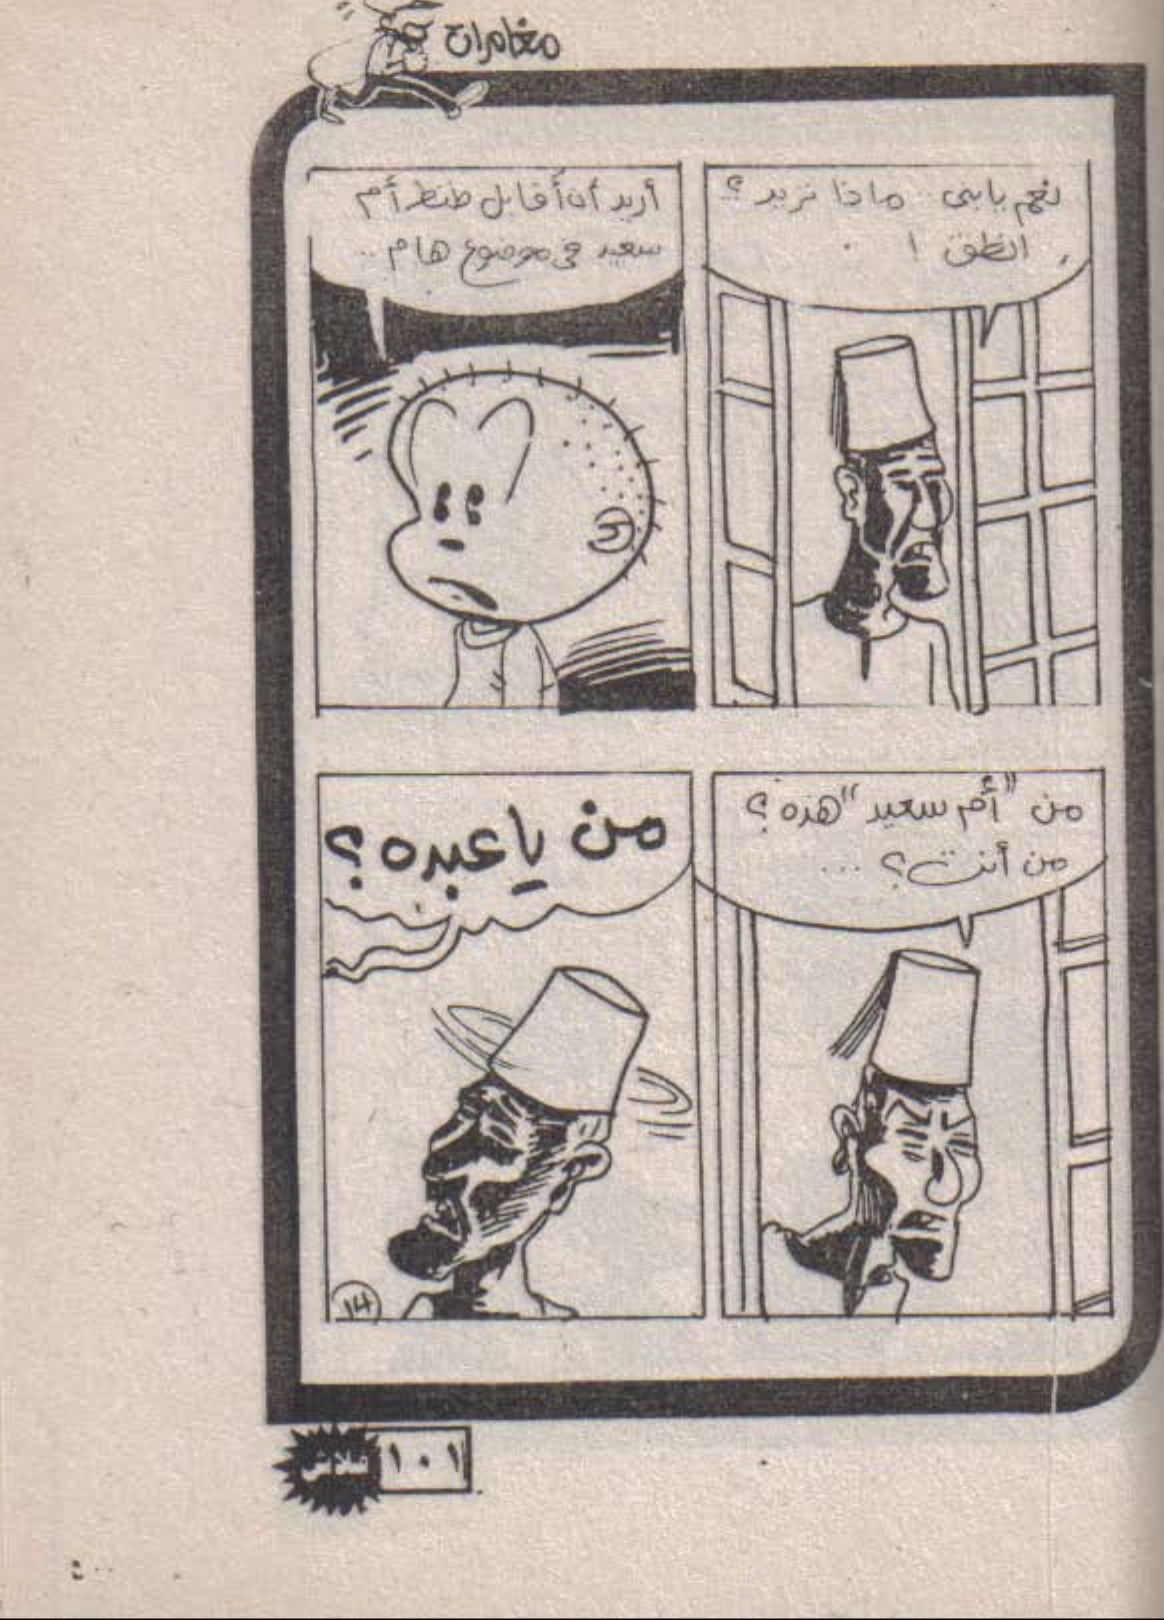 مغامرات
نعم يا بنى.. ماذا تريد؟
انطق !
أريد أن أقابل طنط أم
سعيد فى موضوع هام..
من "أم سعيد" هذه؟
من أنت؟ ...
من يا عبده؟
14
١٠١
فلاش